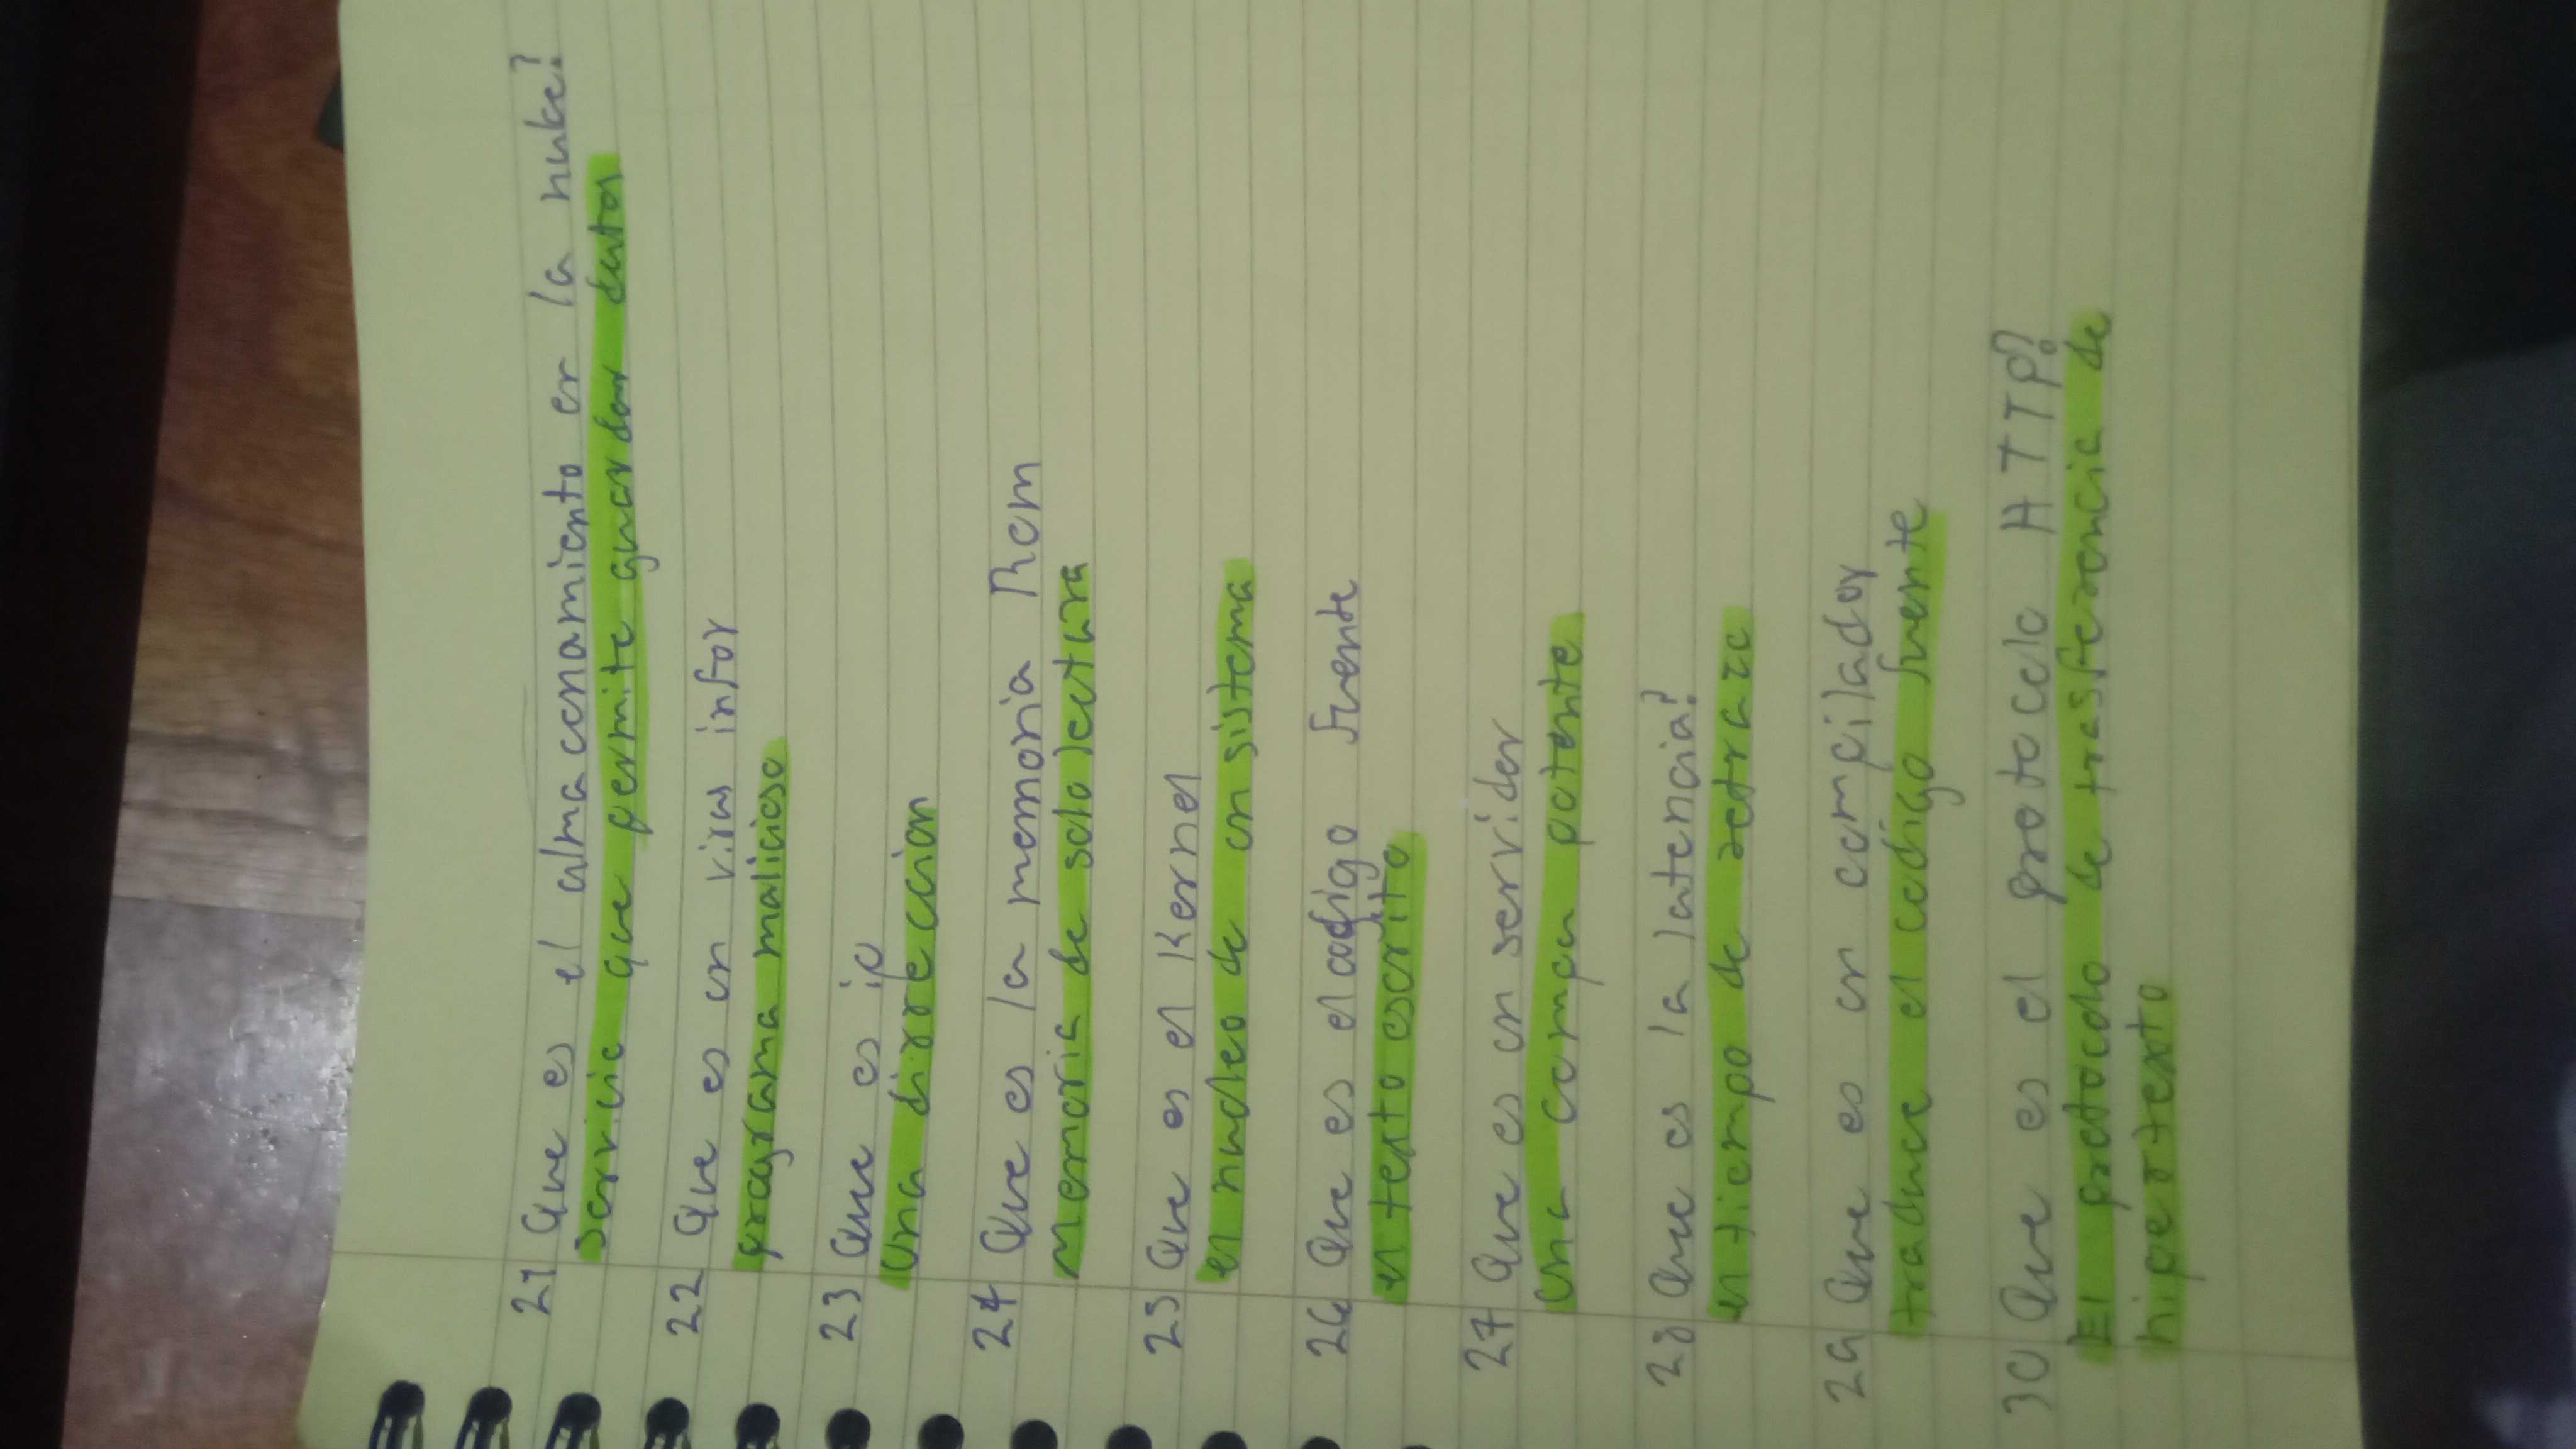 21 Que es el almacenamiento en la nube?
servicio que permite guardar datos
22 Que es un virus infor
programa malicioso
23 Que es ip
una dirrecion
24 Que es la memoria Rom
Memoria de solo lectura
25 Que es el Kernel
el nucleo de un sistema
26 Que es el codigo fuente
el texto escrito
27 Que es un servidor
una compu potente
28 Que es la latencia?
el tiempo de retrazo
29 Que es un compilador
traduce el codigo fuente
30 Que es el protocolo HTTP?
El protocolo de trasferencia de
hipertexto